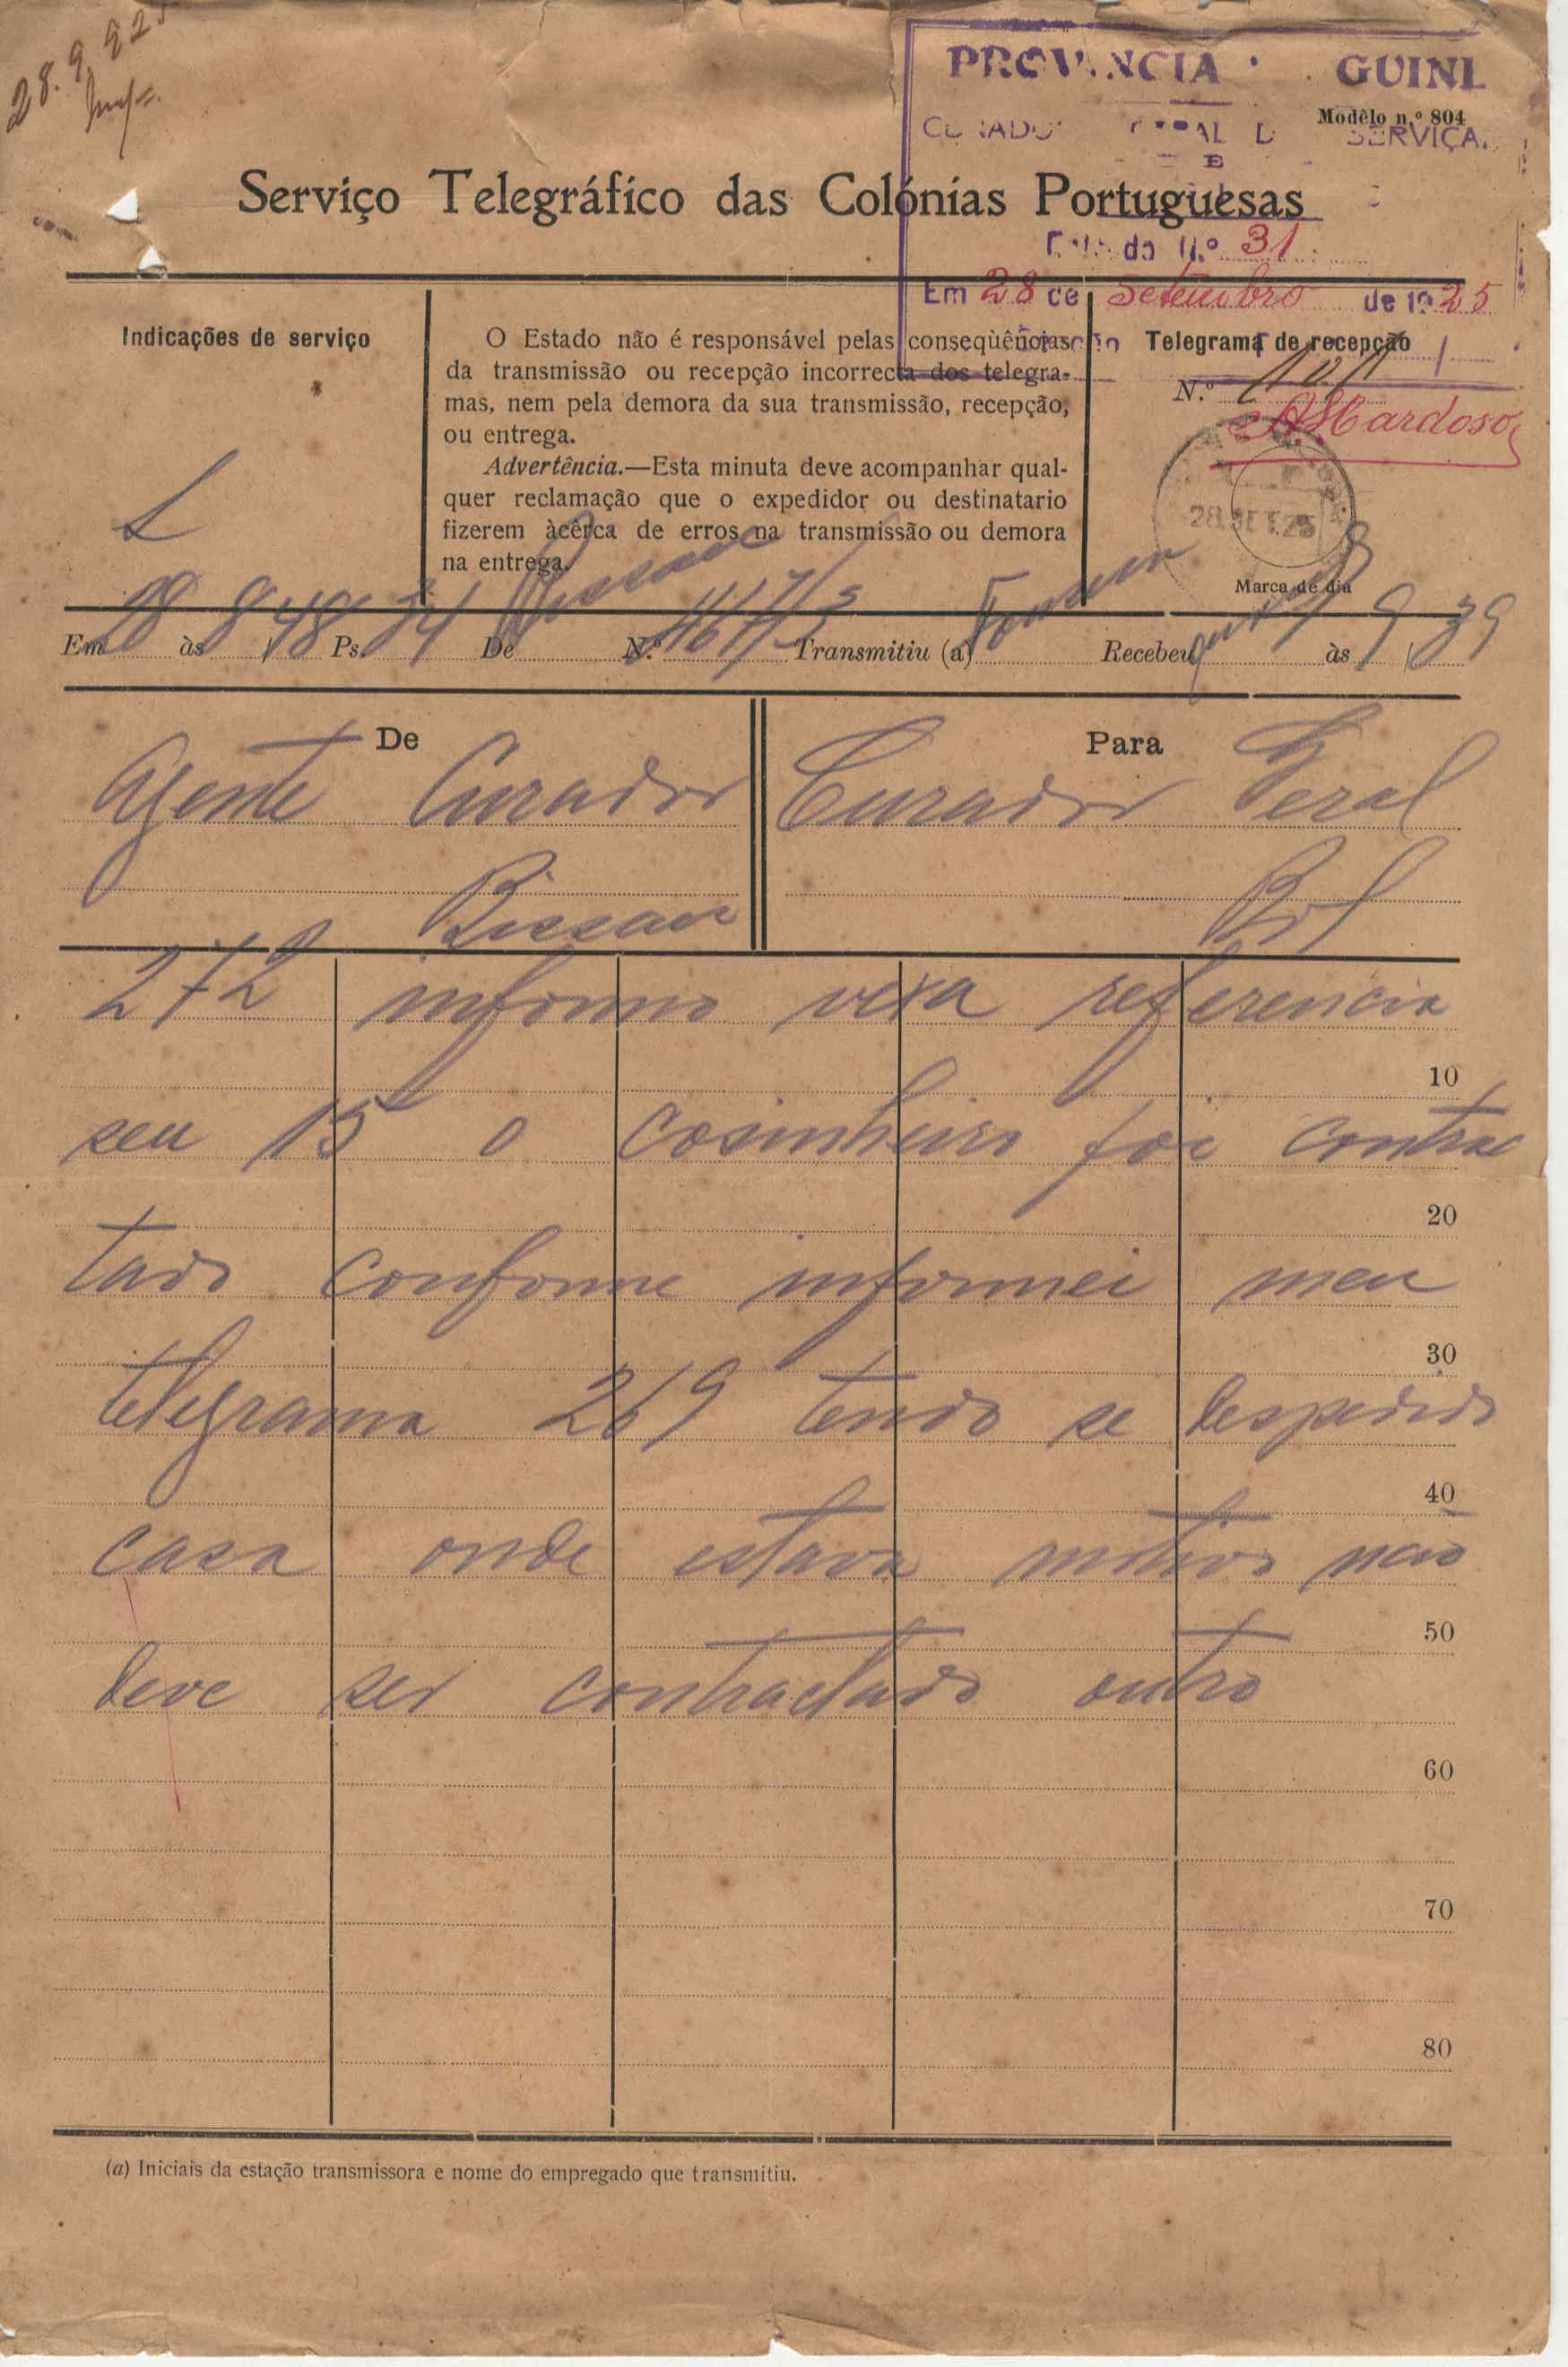 28.9.925
PROVINCIA GUINÉ
Modêlo n.º 804
Serviço Telegráfico das Colónias Portuguesas
da N.º 31
Em 28 de Setembro de 1925
Indicações de serviço
L
O Estado não é responsável pelas conseqüências
da transmissão ou recepção incorrecta dos telegra-
mas, nem pela demora da sua transmissão, recepção,
ou entrega.
Advertência.—Esta minuta deve acompanhar qual-
quer reclamação que o expedidor ou destinatario
fizerem àcêrca de erros na transmissão ou demora
na entrega.
Telegrama de recepção
N.º
Cardoso
28 SET. 25
Marca de dia
Em 28 às 8/48 Ps. 34 De Bissau N.º Transmitiu (a) Recebeu às 9/39
De
Agente Curador
Bissau
Para
Curador Geral
Bol
272 informo vexa referencia
10
seu 15 o cosinheiro foi contrac
20
tado conforme informei meu
30
telegrama 269 tendo se despedido
40
casa onde estava motivo não
50
deve ser contractado outro
60
70
80
(a) Iniciais da estação transmissora e nome do empregado que transmitiu.